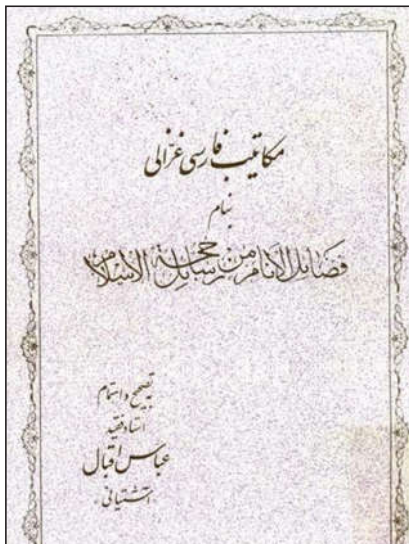 مکاتیب فارسی غزالی
بنام
فضائل الأنام من رسائل حجة الاسلام
بتصحیح و اهتمام
استاد فقید
عباس اقبال
آشتیانی